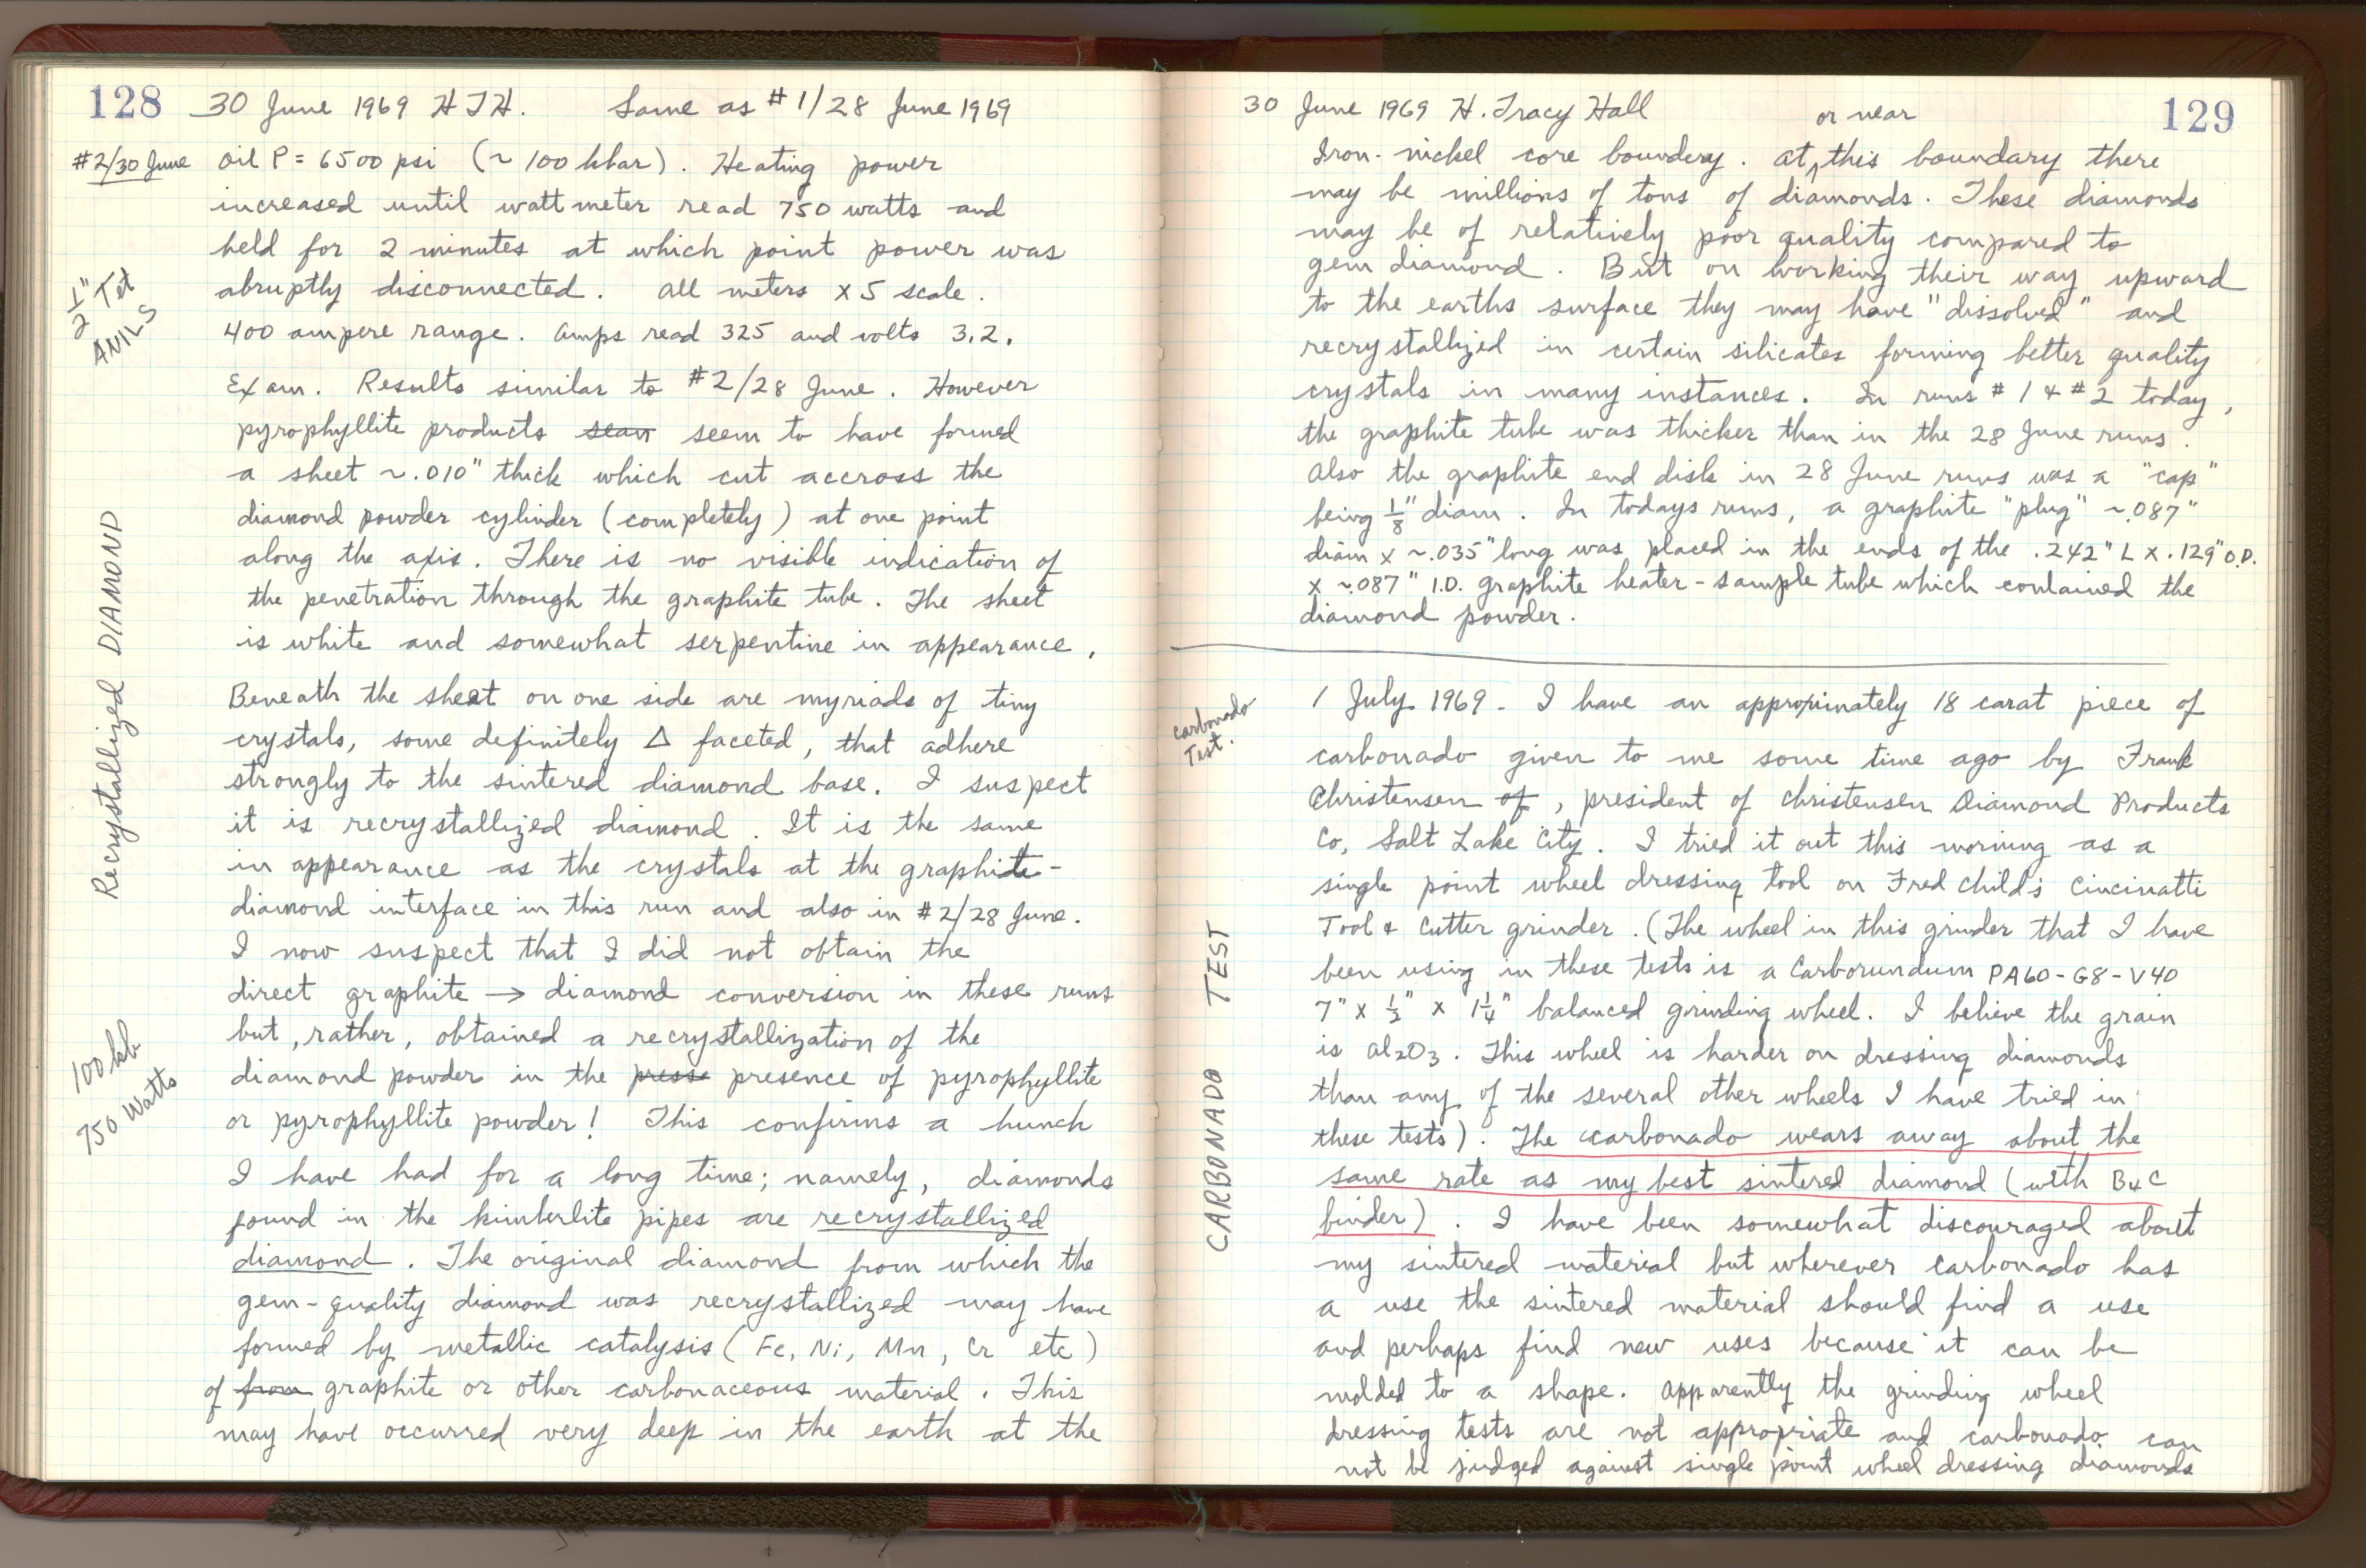 128 30 June 1969 HTH. Same as #1/28 June 1969
#2/30 June Oil P = 6500 psi (~ 100 kbar). Heating power
increased until wattmeter read 750 watts and
held for 2 minutes at which point power was
abruptly disconnected. All meters x 5 scale.
400 ampere range. Amps read 325 and volts 3.2.
1/2" Tet
ANVLS
Exam. Results similar to #2/28 June. However
pyrophyllite products sean seem to have formed
a sheet ~.010" thick which cut accross the
diamond powder cylinder (completely) at one point
along the axis. There is no visible indication of
the penetration through the graphite tube. The sheet
is white and somewhat serpentine in appearance.
Recrystallized DIAMOND
Beneath the sheet on one side are myriads of tiny
crystals, some definitely Δ faceted, that adhere
strongly to the sintered diamond base. I suspect
it is recrystallized diamond. It is the same
in appearance as the crystals at the graphite-
diamond interface in this run and also in #2/28 June.
I now suspect that I did not obtain the
direct graphite → diamond conversion in these runs
but, rather, obtained a recrystallization of the
diamond powder in the presse presence of pyrophyllite
or pyrophyllite powder! This confirms a hunch
100 kb
750 Watts
I have had for a long time; namely, diamonds
found in the kimberlite pipes are recrystallized
diamond. The original diamond from which the
gem-quality diamond was recrystallized may have
formed by metallic catalysis (Fe, Ni, Mn, Cr etc)
of from graphite or other carbonaceous material. This
may have occurred very deep in the earth at the
30 June 1969 H. Tracy Hall 129
or near
Iron-nickel core boundery. At this boundary there
may be millions of tons of diamonds. These diamonds
may be of relatively poor quality compared to
gem diamond. But on working their way upward
to the earths surface they may have "dissolved" and
recrystallized in certain silicates forming better quality
crystals in many instances. In runs #1 & #2 today,
the graphite tube was thicker than in the 28 June runs.
Also the graphite end disk in 28 June runs was a "cap"
being 1/8" diam. In todays runs, a graphite "plug" ~.087"
diam x ~.035" long was placed in the ends of the .242" L x .129" O.D.
x ~.087" I.D. graphite heater-sample tube which contained the
diamond powder.
carbonado
Test.
1 July 1969 - I have an approximately 18 carat piece of
carbonado given to me some time ago by Frank
Christensen of, president of Christensen Diamond Products
Co, Salt Lake City. I tried it out this morning as a
single point wheel dressing tool on Fred Child's Cincinatti
Tool & Cutter grinder. (The wheel in this grinder that I have
been using in these tests is a Carborundum PA60-G8-V40
7" x 1/2" x 1 1/4" balanced grinding wheel. I believe the grain
is Al2O3. This wheel is harder on dressing diamonds
than any of the several other wheels I have tried in
these tests). The carbonado wears away about the
same rate as my best sintered diamond (with B4C
binder). I have been somewhat discouraged about
my sintered material but wherever carbonado has
a use the sintered material should find a use
and perhaps find new uses because it can be
molded to a shape. Apparently the grinding wheel
dressing tests are not appropriate and carbonado can
not be judged against single point wheel dressing diamonds
CARBONADO TEST